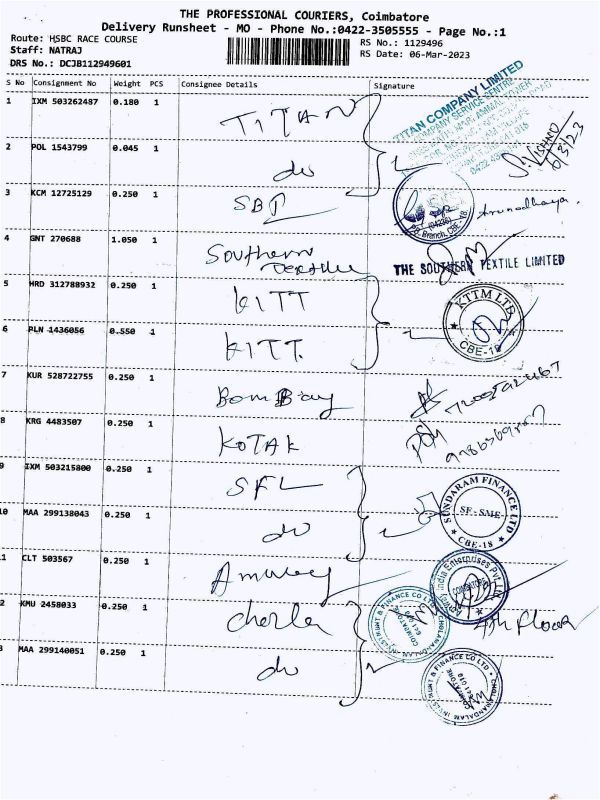 THE PROFESSIONAL COURIERS, Coimbatore
Delivery Runsheet - MO - Phone No.:0422-3505555 - Page No.:1
Route: HSBC RACE COURSE
Staff: NATRAJ
DRS No.: DCJB112949601
RS No.: 1129496
RS Date: 06-Mar-2023
S No Consignment No Weight PCS Consignee Details Signature
1 IXM 503262487 0.180 1 TITAN
TITAN COMPANY LIMITED
6/3/23
2 POL 1543799 0.045 1 do
3 KCM 12725129 0.250 1 SBI
(04296)
Branch, CBE-18
Arunodhaya.
4 GNT 270688 1.050 1 Southern Textile
THE SOUTHERN TEXTILE LIMITED
5 HRD 312788932 0.250 1 KITT
KTTM LTD
CBE-18
6 PLN 1436056 0.550 1 KITT.
7 KUR 528722755 0.250 1 Bombay
8 KRG 4483507 0.250 1 KOTAK
9 IXM 503215800 0.250 1 SFL
SUNDARAM FINANCE LTD
SF - SALE
CBE-18
10 MAA 299138043 0.250 1 do
1 CLT 503567 0.250 1 Amway
India Enterprises Pvt.
COIMBATORE
2 KMU 2458033 0.250 1 Chola
CHOLAMANDALAM INVESTMENT & FINANCE CO LTD
COIMBATORE
641 018
4th Floor
3 MAA 299140051 0.250 1 do
CHOLAMANDALAM INVESTMENT & FINANCE CO LTD
COIMBATORE
641 018